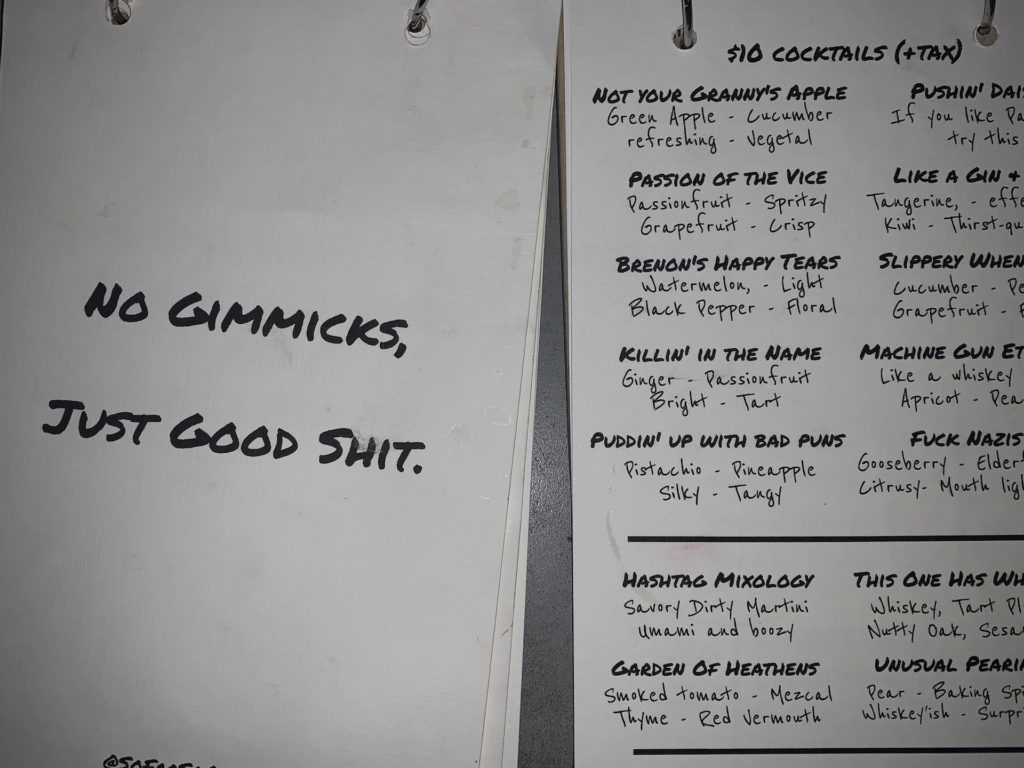 No Gimmicks,
Just Good Shit.
$10 cocktails (+tax)
Not your Granny's Apple
Green Apple - Cucumber
refreshing - Vegetal
Passion of the Vice
Passionfruit - Spritzy
Grapefruit - Crisp
Brenon's Happy Tears
Watermelon, - Light
Black Pepper - Floral
Killin' in the Name
Ginger - Passionfruit
Bright - Tart
Puddin' up with bad puns
Pistachio - Pineapple
Silky - Tangy
Pushin'
If you like
try this
Like a Gin &
Tangerine, -
Kiwi -
Slippery When
Cucumber -
Grapefruit -
Machine Gun
Like a whiskey
Apricot -
Fuck Nazis
Gooseberry -
Citrusy- Mouth
Hashtag Mixology
Savory Dirty Martini
Umami and boozy
Garden Of Heathens
Smoked tomato - Mezcal
Thyme - Red Vermouth
This One Has
Whiskey, Tart
Nutty Oak,
Unusual
Pear - Baking
Whiskey'ish -